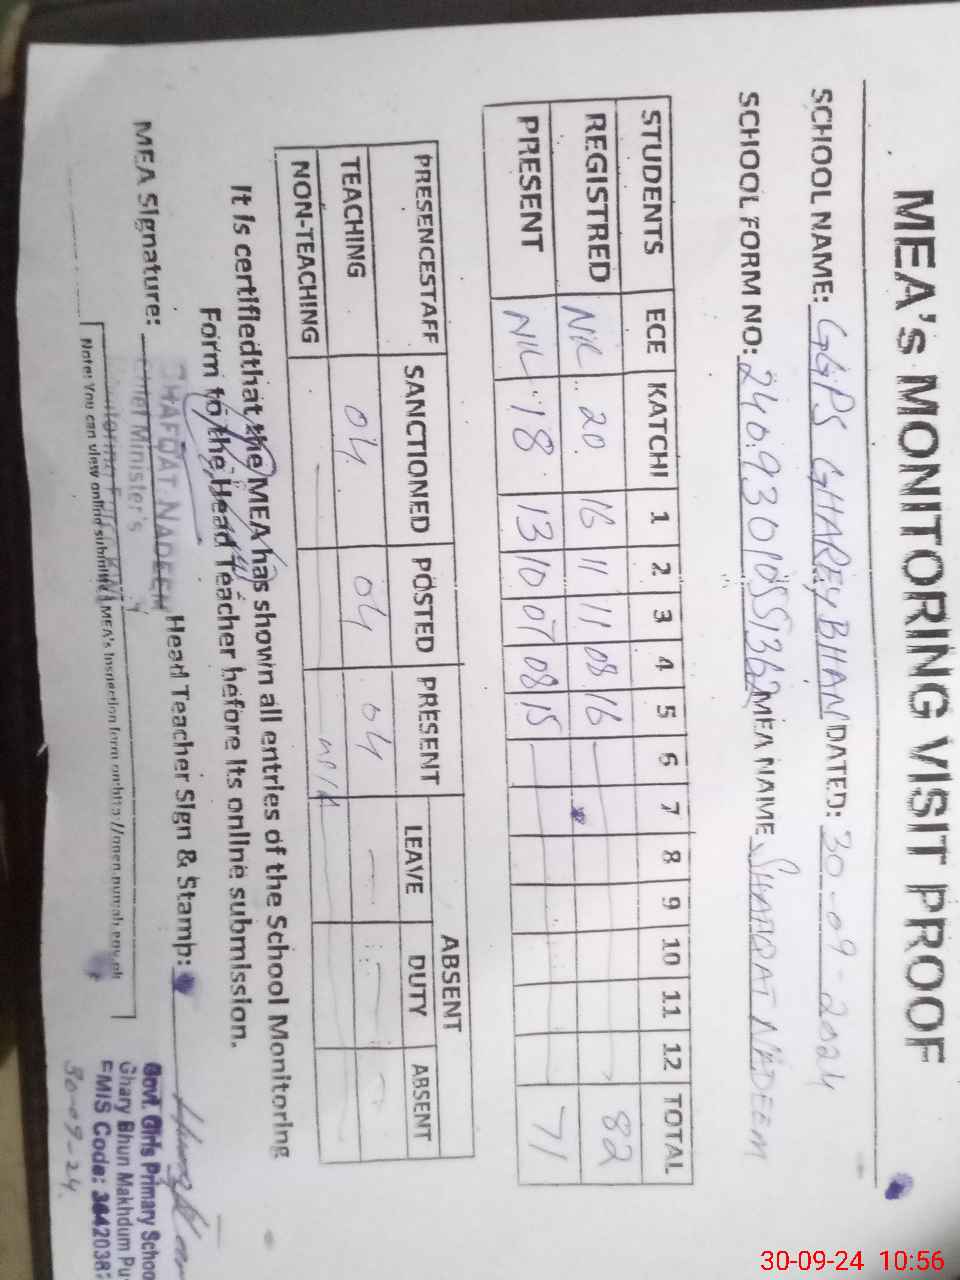 MEA's MONITORING VISIT PROOF
SCHOOL NAME: GGPS GHAREY BHAN DATED: 30-09-2024
SCHOOL FORM NO: MEA NAME SHAFQAT NADEEM
STUDENTS ECE KATCHI 1 2 3 4 5 6 7 8 9 10 11 12 TOTAL
REGISTRED NIL 20 16 11 11 08 16 82
PRESENT NIL 18 13 10 07 08 15 71
ABSENT
PRESENCESTAFF SANCTIONED POSTED PRESENT LEAVE DUTY ABSENT
TEACHING 04 04 04
NON-TEACHING
It is certifiedthat the MEA has shown all entries of the School Monitoring
Form to the Head Teacher before its online submission.
MEA Signature: Head Teacher Sign & Stamp:
SHAFQAT NADEEM
Chief Minister's
Note: You can view online submitted MEA's Inspection form on:http://open.punjab.gov.pk
Govt. Girls Primary Schoo
Ghary Bhun Makhdum Pu
EMIS Code:
30-09-24
30-09-24 10:56